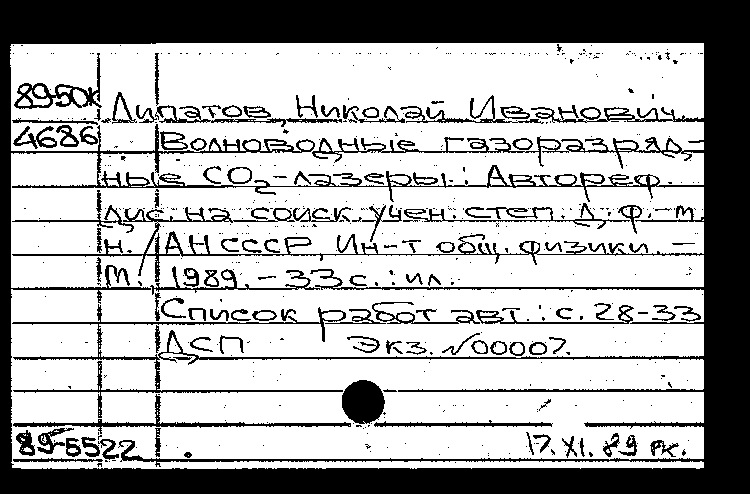 89-50к Липатов, Николай Иванович.
4686 Волноводные газоразряд-
ные CO2-лазеры : Автореф.
дис. на соиск. учен. степ. д. ф.-м.
н. / АН СССР, Ин-т общ. физики. –
М. : 1989. – 33 с. : ил.
Список работ авт. : с. 28-33
ДСП Экз. №00007.
89-5522 17. XI. 89 рк.